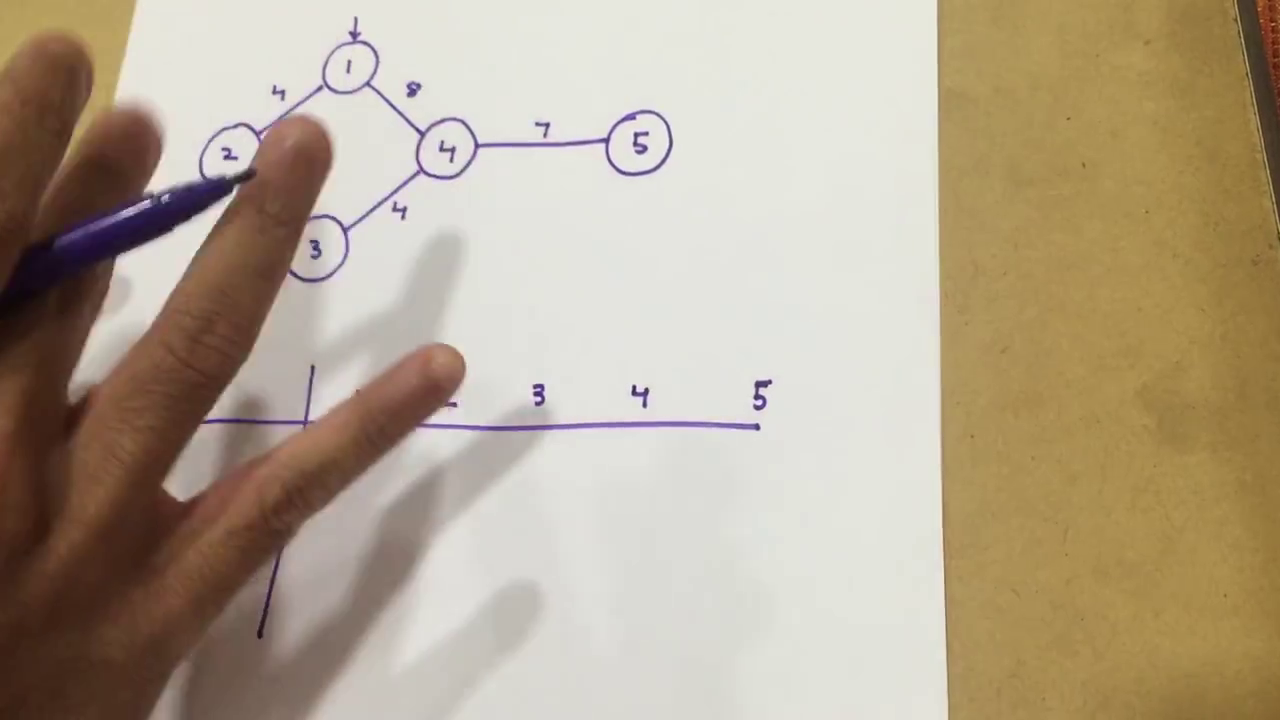 1
4
8
2
4
7
5
4
3
3 4 5